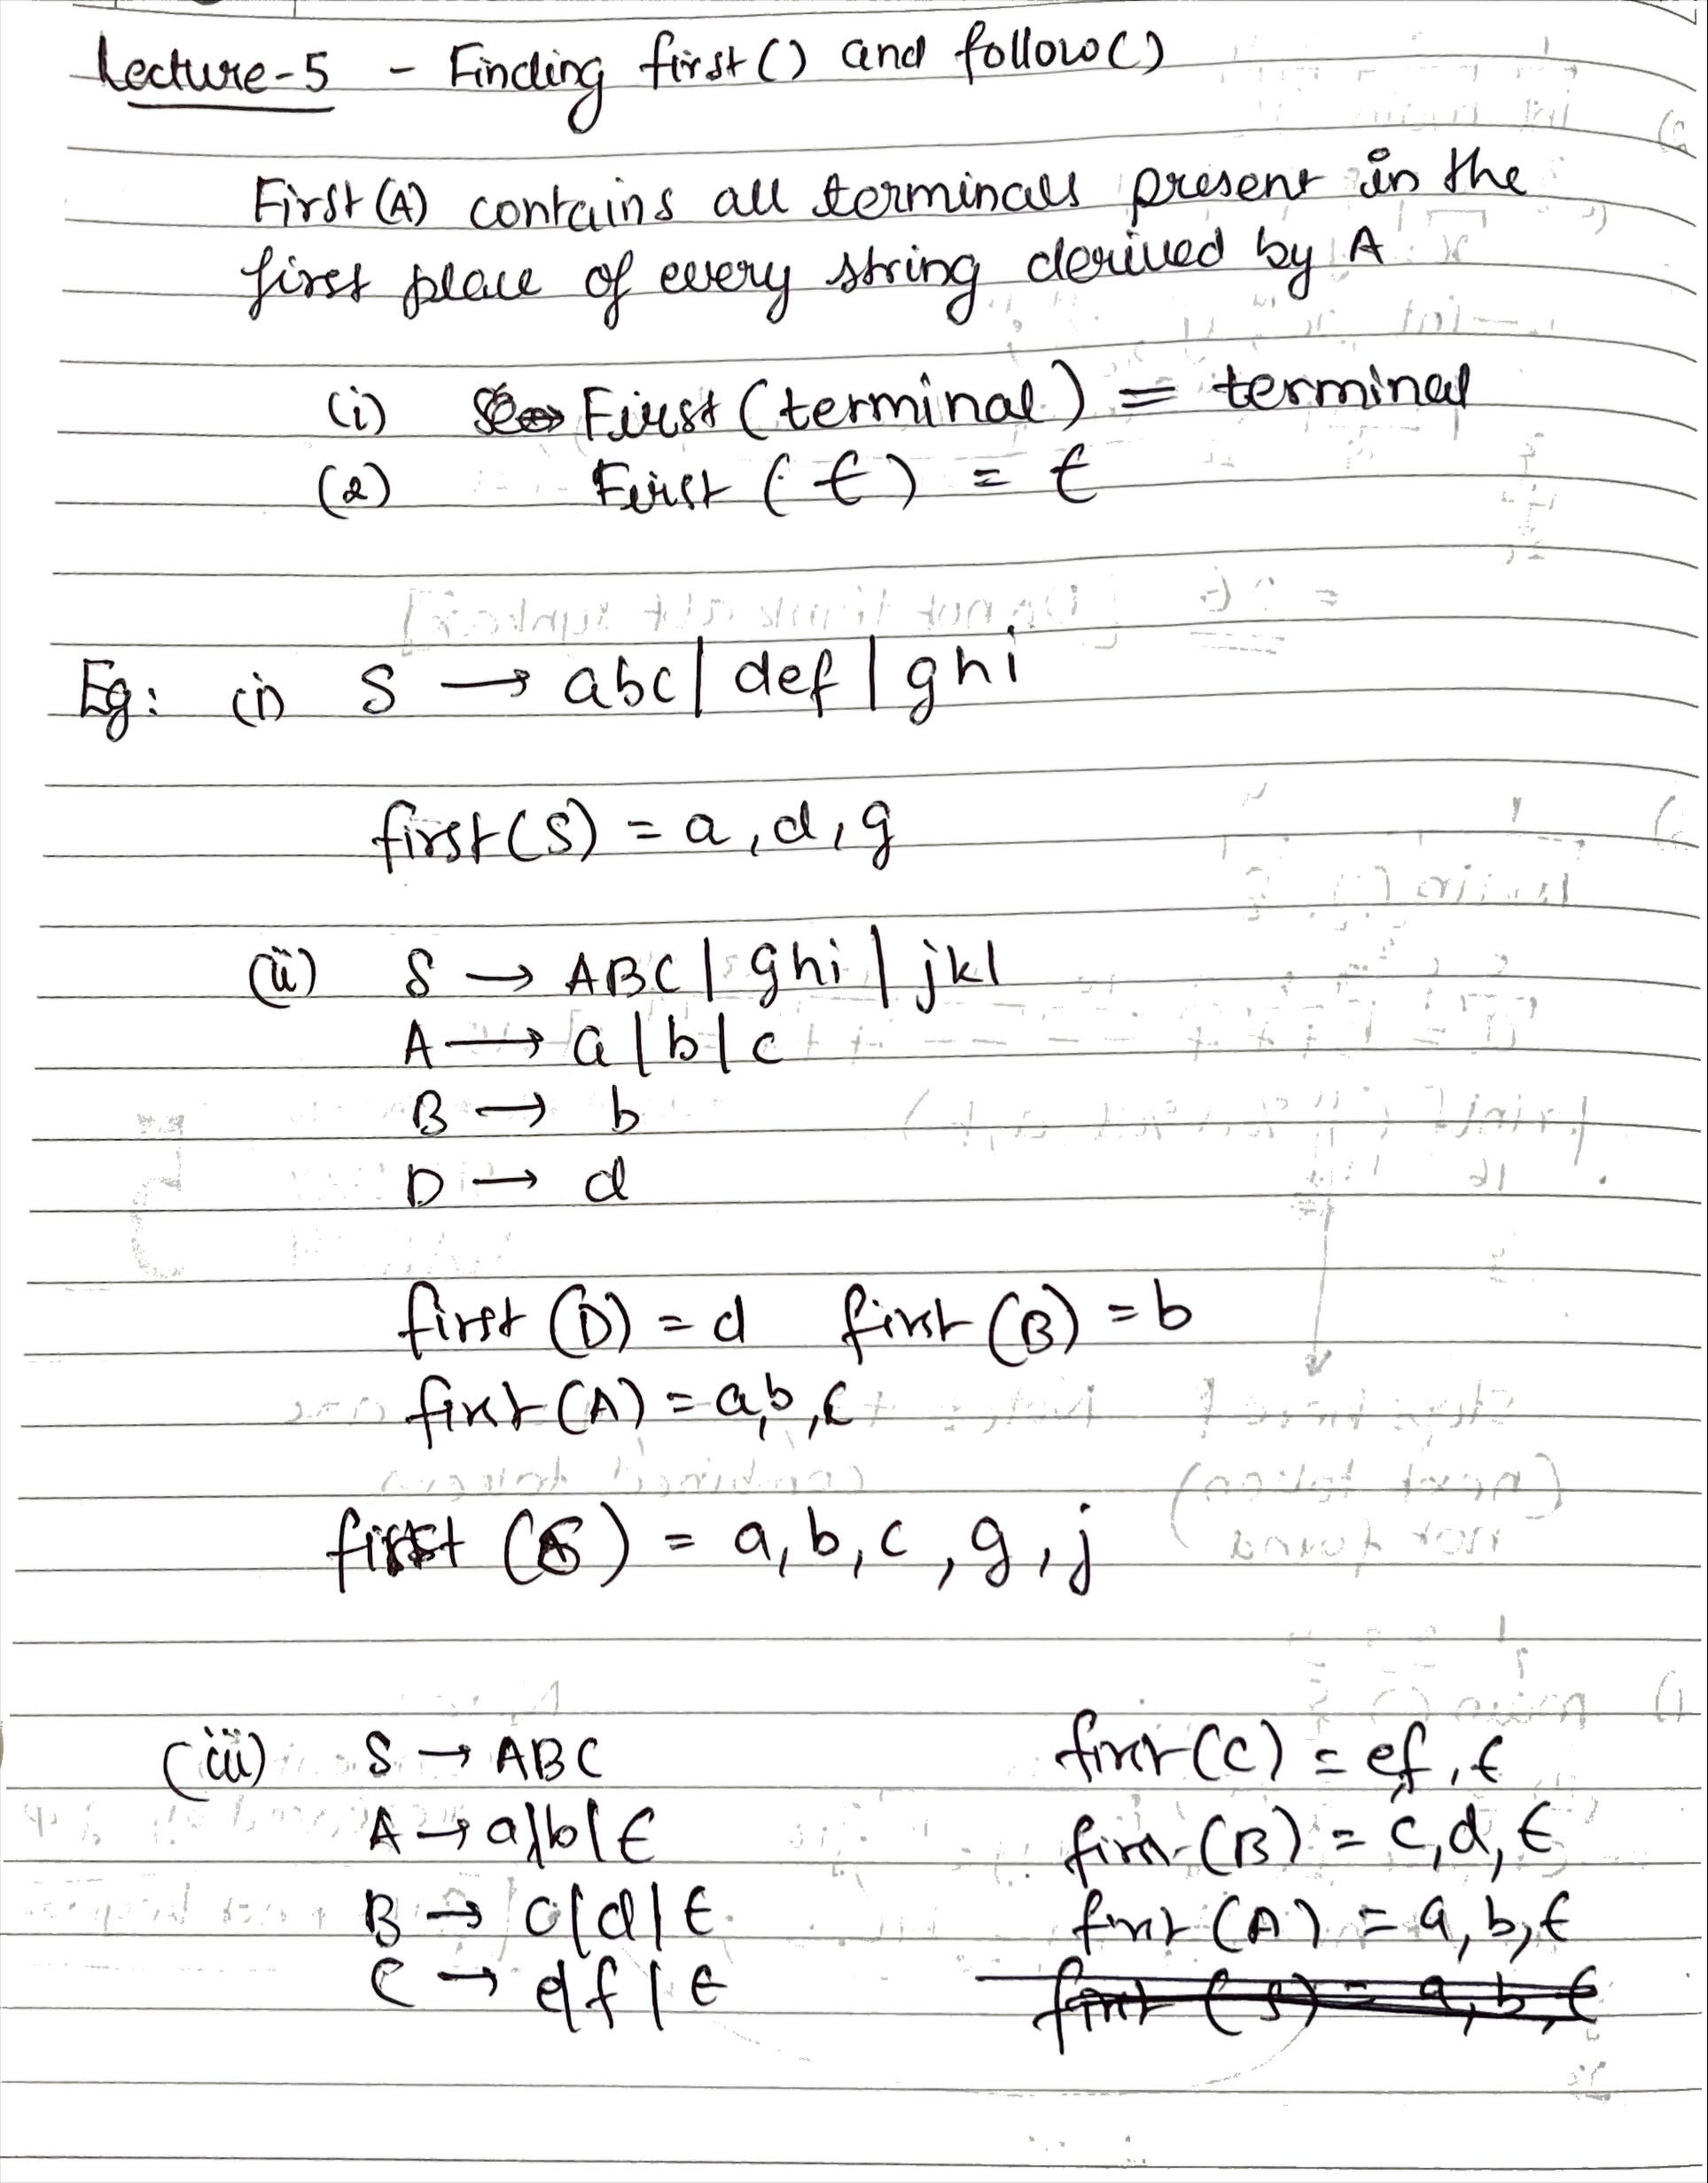 Lecture-5 - Finding first() and follow()
First(A) contains all terminals present in the
first place of every string derived by A
(i) First (terminal) = terminal
(2) First (ϵ) = ϵ
Eg: (i) S → abc | def | ghi
first(S) = a, d, g
(ii) S → ABC | ghi | jkl
A → a | b | c
B → b
D → d
first (D) = d first (B) = b
first (A) = a, b, c
first (S) = a, b, c, g, j
(iii) S → ABC first (C) = e, f, ϵ
A → a | b | ϵ first (B) = c, d, ϵ
B → c | d | ϵ first (A) = a, b, ϵ
C → e | f | ϵ first (S) = a, b, ϵ